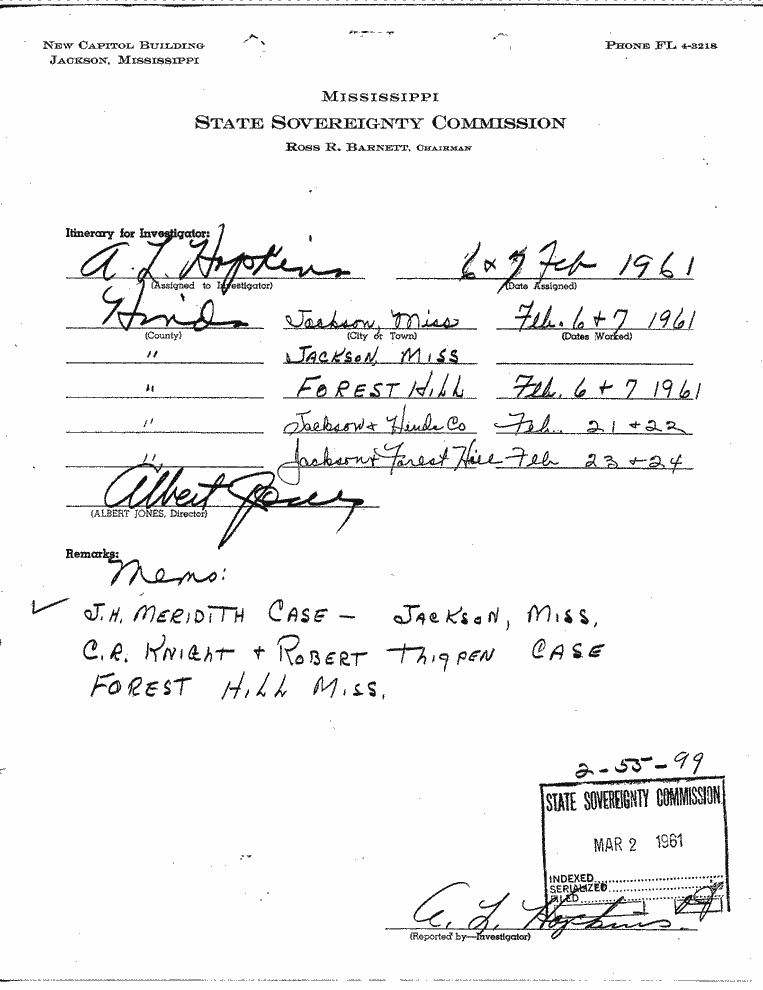 NEW CAPITOL BUILDING
JACKSON, MISSISSIPPI
PHONE FL 4-3218
MISSISSIPPI
STATE SOVEREIGNTY COMMISSION
ROSS R. BARNETT, CHAIRMAN
Itinerary for Investigator:
A. L. Hopkins 6 & 7 Feb 1961
(Assigned to Investigator) (Date Assigned)
Hinds Jackson, Miss Feb. 6 + 7 1961
(County) (City or Town) (Dates Worked)
" JACKSON, MISS
" FOREST HILL Feb. 6 + 7 1961
" Jackson & Hinds Co Feb. 21 + 22
" Jackson & Forest Hill Feb 23 + 24
Albert Jones
(ALBERT JONES, Director)
Remarks:
Memo:
✓ J.H. MERIDITH CASE — JACKSON, MISS,
C.R. KNIGHT + ROBERT THIGPEN CASE
FOREST HILL MISS.
2-55-99
STATE SOVEREIGNTY COMMISSION
MAR 2 1961
INDEXED
SERIALIZED
FILED
A. L. Hopkins
(Reported by—Investigator)